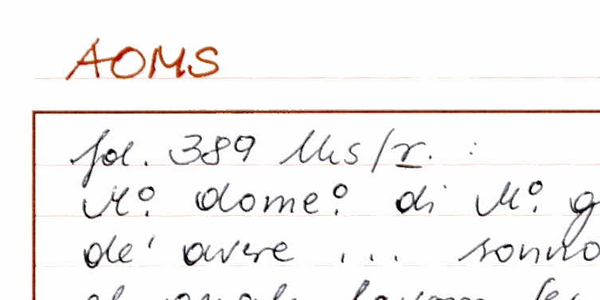 AOMS
fol. 389 bis/r. :
Mº. domeº. di Mº. g
de' avere ... sonno